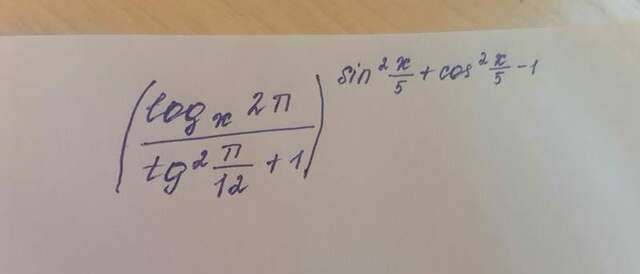 (log_x 2π / tg² π/12 + 1)^(sin² x/5 + cos² x/5 - 1)